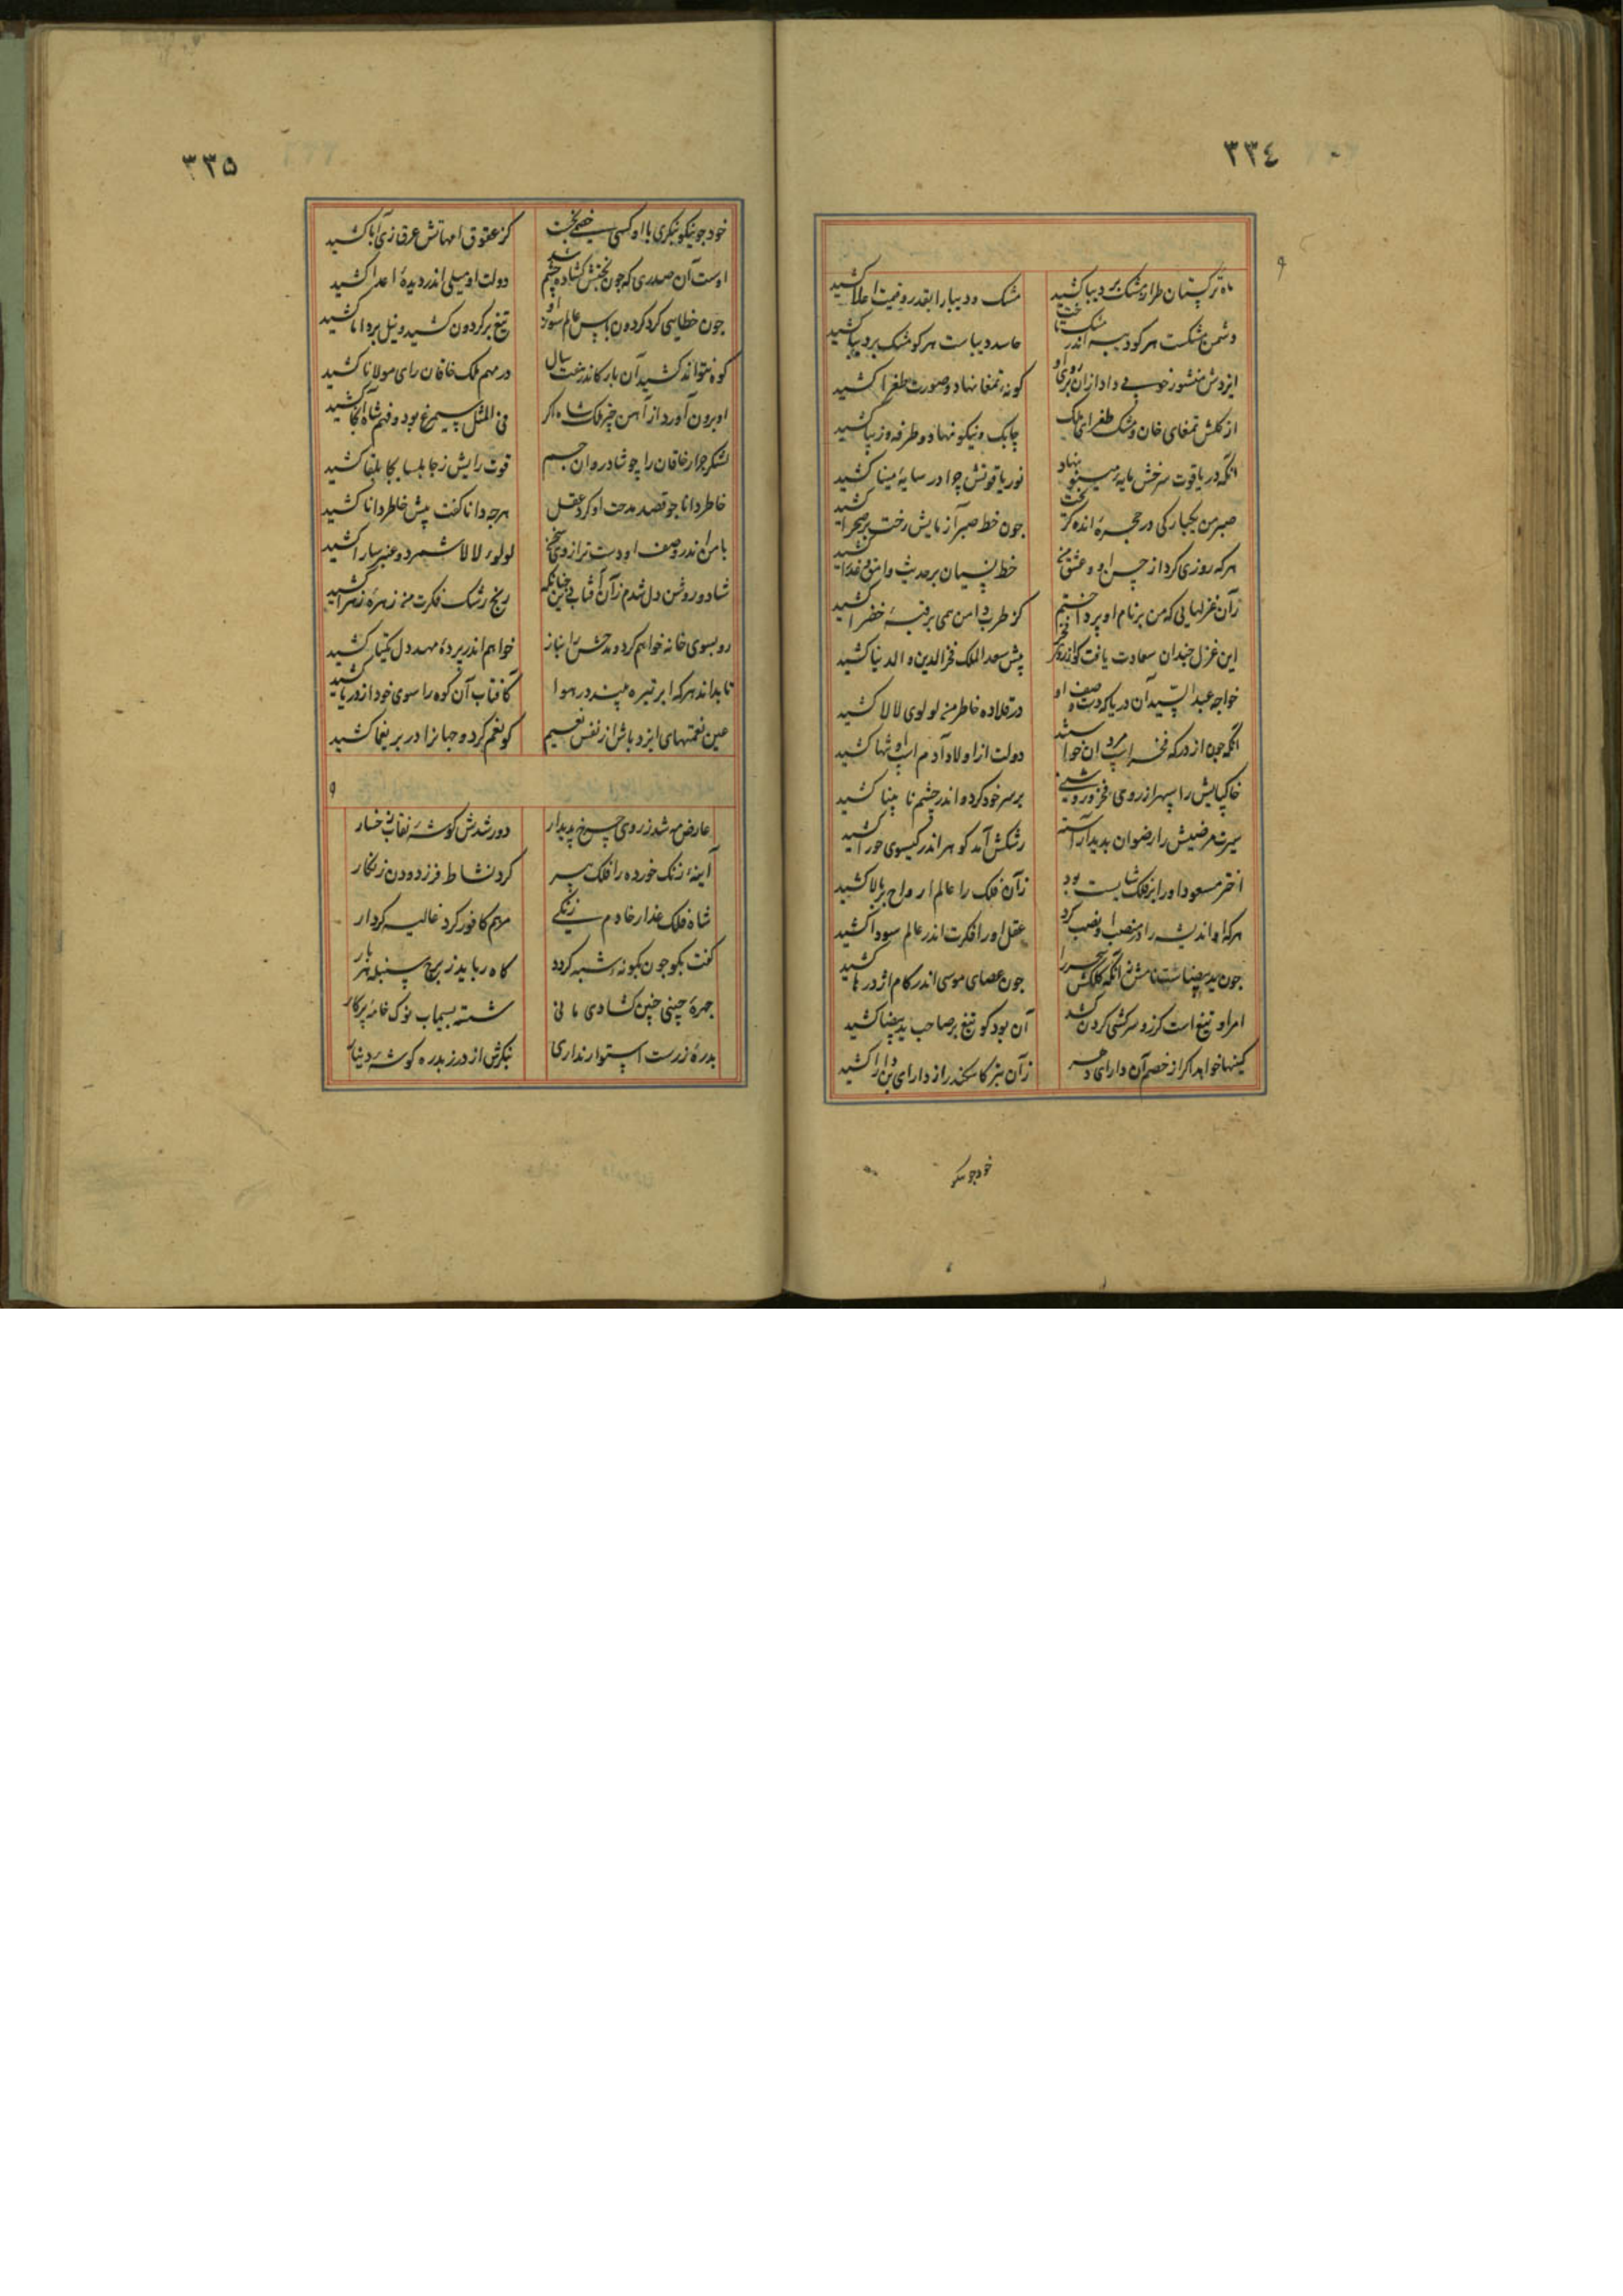 ٣٣٤
ماه ترکستان طراز مشک بر دیبا کشید
مشک و دیبا را بقدر و قیمت اعلا کشید
دشمن مشکست هر کو دیبه اندر مشک
حاسد دیباست هر کو مشک بر دیبا کشید
ایزدش منشور خوبی داد از آن بر روی او
کونه تمغا نهاد و صورت طغرا کشید
از کلش تمغای خان وز مشک طغرای ملک
چابک و نیکو نهاد و طرفه و زیبا کشید
انکه در یاقوت سرخش مایه نهاد
نور یاقوتش چرا در سایهٔ مینا کشید
صبر من یکبارکی در حجرهٔ اندر
چون خط صبر آزمایش رخت بر صحرا کشید
هر که روزی کرد از حسن او و عشق من
خط نسیان بر حدیث وامق و عذرا کشید
زآن غزلهایی که من بر نام او پرداختم
کز طرب دامن همی بر قبهٔ خضرا کشید
این غزل چندان سعادت یافت کز
پیش سعد الملک فخر الدین و الدنیا کشید
خواجه عبد السید آن دریا که در وصف او
در قلاده خاطر من لولوی لالا کشید
انکه چون از درکه فخر
دولت از اولاد آدم
خاکپایش را سپهر از روی فخر و روشنی
بر سر خود کرد و اندر چشم نا بینا کشید
سیرت مرضیش را رضوان بدید آراسته
رشکش آمد کو هر اندر کیسوی حورا کشید
اختر مسعود او را بر فلک شایست بود
زآن فلک را عالم ارواح بر بالا کشید
هر که او اندیشه را در منصب او نصب کرد
عقل او را فکرت اندر عالم سودا کشید
چون ید بیضاست نامش انکه کلکش
چون عصای موسی اندر کام اژدرها کشید
امر او تیغ است کز وسرکشی کردن کشد
آن بود کو تیغ بر صاحب ید بیضا کشید
کینها خواهد اکر از خصم آن دارای دهر
زآن بتر کاسکندر از دارای بن دارا کشید
خود جو نیکو
٣٣٥
خود جو نیکو بنکری با او کسی خصمی نجست
کز عقوق امهاتش عرق زی آبا کشید
اوست آن صدری که جون بختش کشاده چشم شد
دولت او میلی اندر دیدهٔ اعدا کشید
جون خطایی کرد کردون باس عالم سوز او
تیغ بر کردون کشید و نیل بر دانا کشید
کوه نتواند کشید آن بار کاندر هشت سال
در مهم ملک خاقان رای مولانا کشید
او برون آورد از آهن
فی المثل سیمرغ بود و فهم شاه آنجا کشید
لشکر جرار خاقان را چو شادروان جم
قوت رایش ز جابلسا بجابلقا کشید
خاطر دانا جو قصد مدحت او کرد عقل
هرچه دانا کفت پیش خاطر دانا کشید
با من اندر وصف او دست ترازوی سخن
لولوء لالا شمرد و عنبر سارا کشید
شاد و روشن دل شدم زآن آفتابی
رنج رشک فکرت من زهرهٔ زهرا کشید
رو بسوی خانه خواهم کرد و مدحش را نیاز
خواهم اندر پردهٔ مهد دل یکتا کشید
تا بداند هر که ابر تیره میند در هوا
کافتاب آن کوه را سوی خود از دریا کشید
عین نعمتهای ایزد باش از نفس نعیم
کو نغم کرد و جهانرا در بر نغما کشید
عارض مه شد ز روی چرخ پدیدار
دور شدش کوشهٔ نقاب ز رخسار
آینهٔ زنک خورده را فلک پیر
کرد نشاط فرزدودن زنکار
شاه فلک عذار خادم زنکی
مرهم کافور کرد غالیه کردار
کفت بکو چون بکونه شبه کردد
کاه رباید ز برج سنبله هر بار
چهرهٔ چینی چنین کشادی مانی
شسته بسیماب نوک خامهٔ پرکار
بدرهٔ زرست استوار نداری
بنکرش از درز بدره کوشهٔ دینار